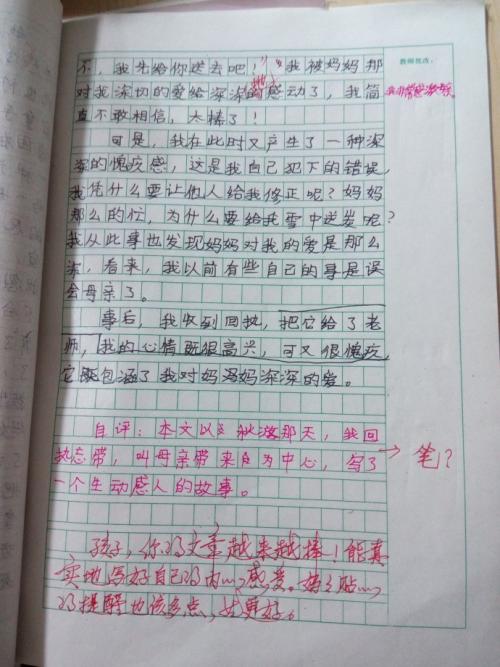 教师批改：
不，我先给你送去吧！”我被妈妈那
对我深切的爱给深深地感动了，我简
我非常感激妈妈。
直不敢相信，太棒了！
可是，我在此时又产生了一种深
深的愧疚感，这是我自己犯下的错误，
我凭什么要让他人给我修正呢？妈妈
那么的忙，为什么要给我雪中送炭呢？
我从此事也发现妈妈对我的爱是那么
深，看来，我以前有些自己的事是误
会母亲了。
事后，我收到回执，把它给了老
师，我的心情既很高兴，可又很愧疚，
它既包涵了我对妈妈深深的爱。
自评：本文以 秋游那天，我回
执忘带，叫母亲带来 为中心，写了
笔？
一个生动感人的故事。
孩子，你的文章越来越棒！能真
实地写好自己的内心感受。妈妈贴心
的提醒也该多点，